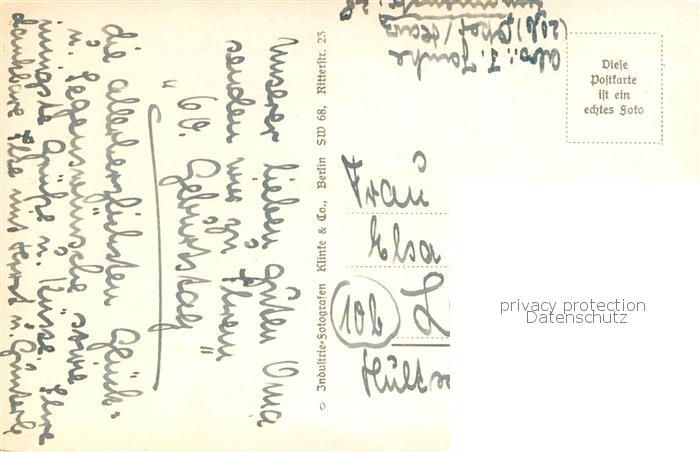 Unserer lieben guten Oma
senden wir zu Ihrem
" 60. Geburtstag "
die allerherzlichsten Glück-
u. Segenswünsche sowie
innigste Grüße u. Küsse. Ihre
dankbare Else mit Horst u. Günterle
© Industrie-Fotografen Klinke & Co., Berlin SW 68, Ritterstr. 23
Abs.: J. Janke
(20b)
Diese
Postkarte
ist ein
echtes Foto
Frau
Elsa
(10b) L
Hült
privacy protection
Datenschutz